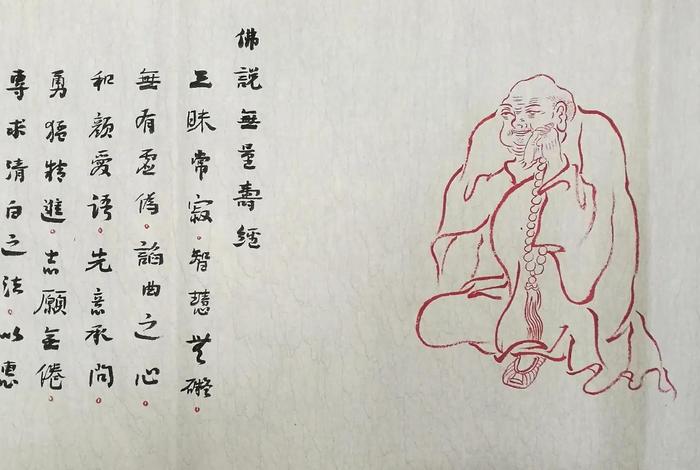 佛説無量壽經
三昧常寂。智慧無礙。
無有虛偽。諂曲之心。
和顏愛語。先意承問。
勇猛精進。志願無倦。
專求清白之法。以惠